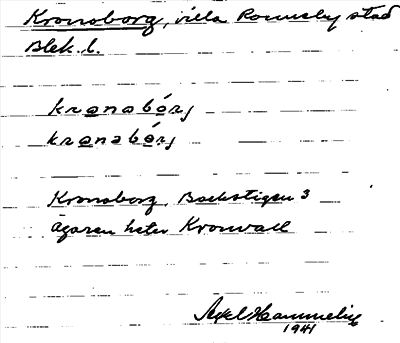 Kronoborg, villa Ronneby stad
Blek. l.
krønabórj
krønabórj
Kronoborg, Backstigen 3
ägaren heter Kronvall
Axel Hammelin
1941